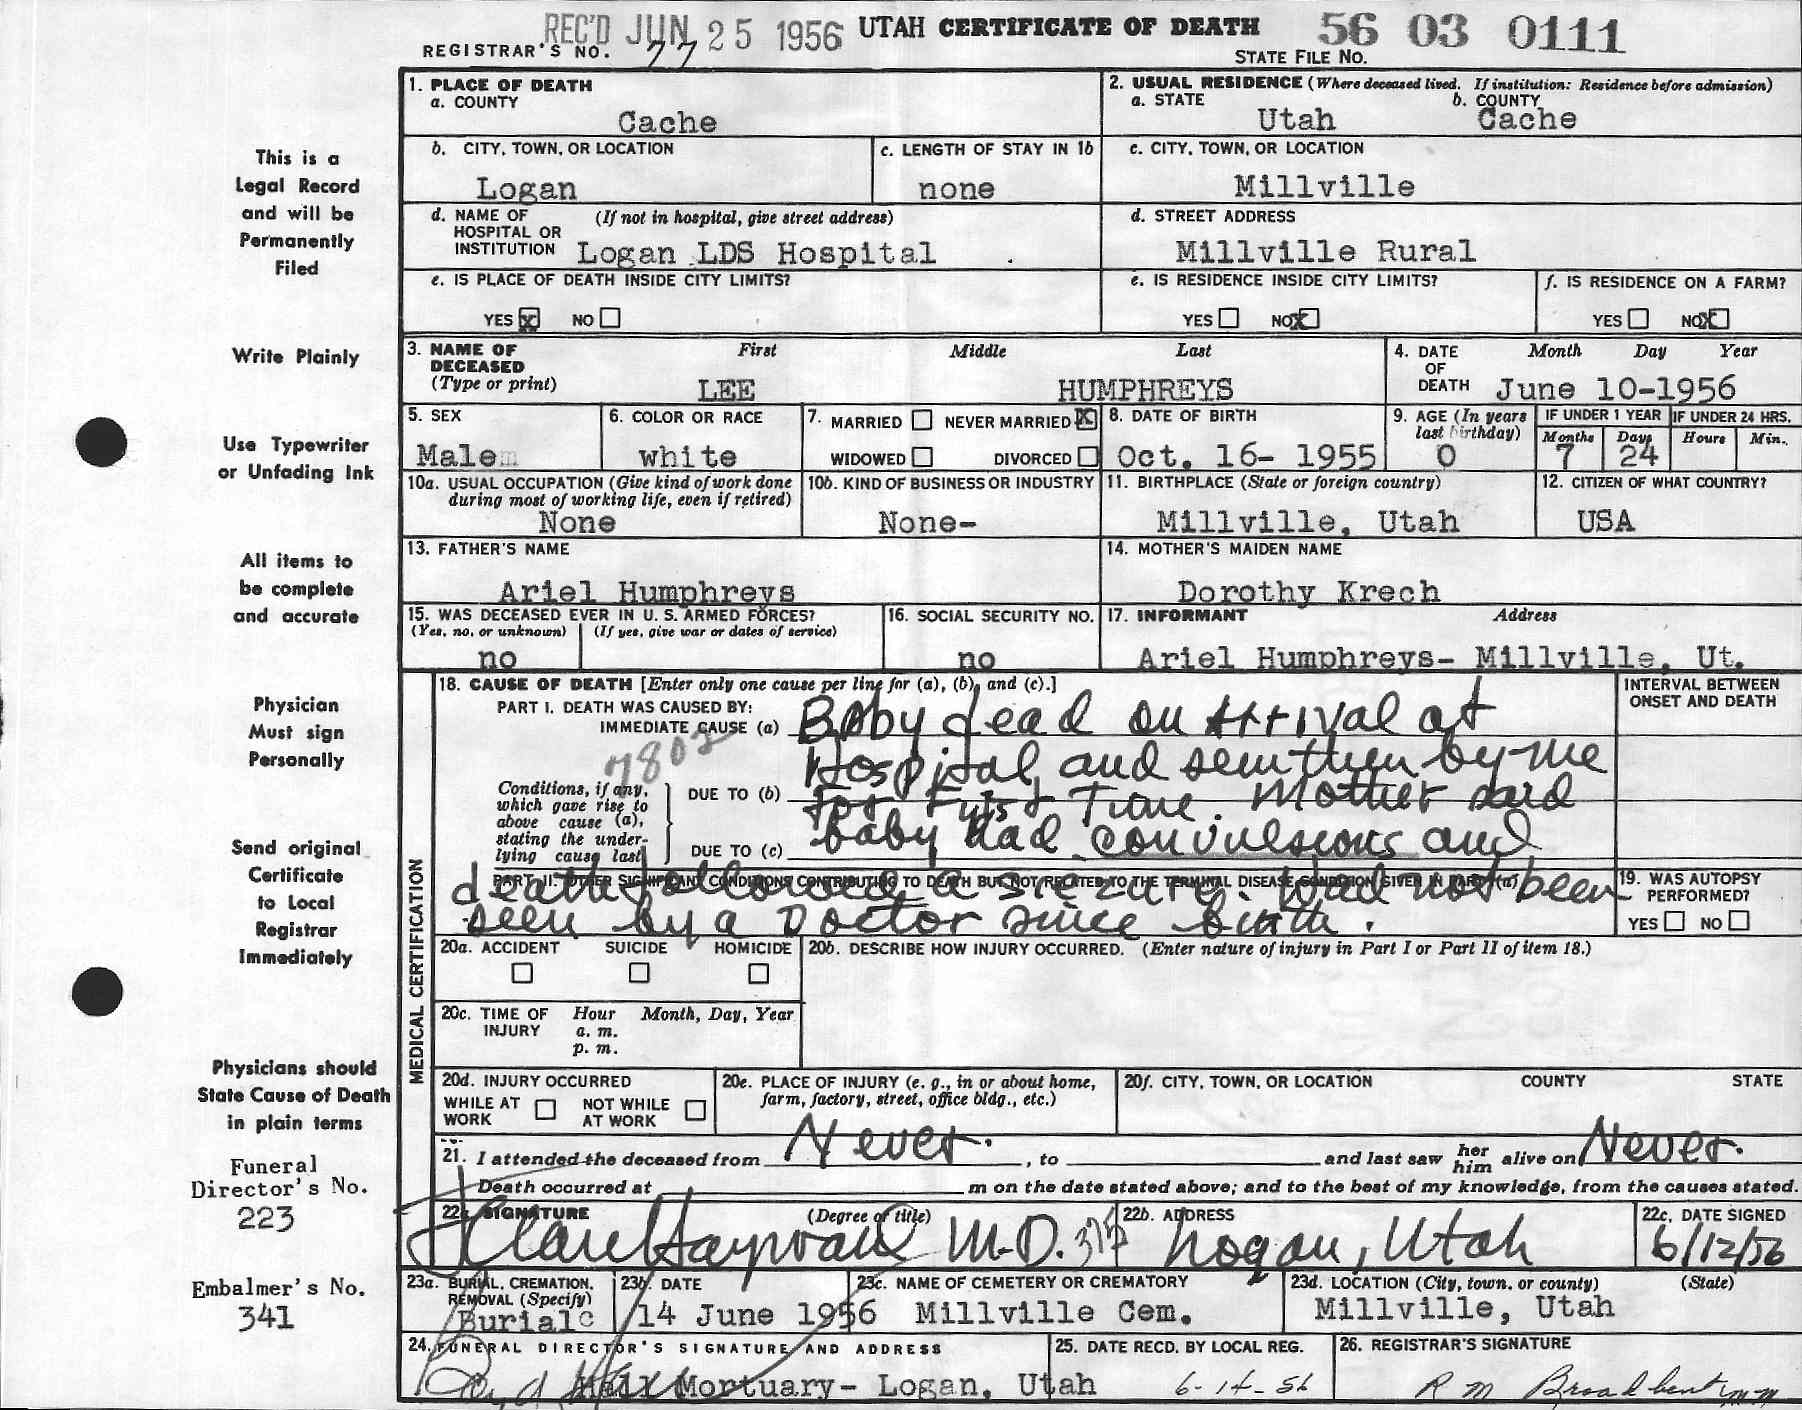 REC'D JUN 25 1956 UTAH CERTIFICATE OF DEATH 56 03 0111
REGISTRAR'S NO. 77 STATE FILE NO.
This is a
Legal Record
and will be
Permanently
Filed
Write Plainly
Use Typewriter
or Unfading Ink
All items to
be complete
and accurate
Physician
Must sign
Personally
Send original
Certificate
to Local
Registrar
Immediately
Physicians should
State Cause of Death
in plain terms
Funeral
Director's No.
223
Embalmer's No.
341
1. PLACE OF DEATH
a. COUNTY
Cache
2. USUAL RESIDENCE (Where deceased lived. If institution: Residence before admission)
a. STATE b. COUNTY
Utah Cache
b. CITY, TOWN, OR LOCATION
Logan
c. LENGTH OF STAY IN 1b
none
c. CITY, TOWN, OR LOCATION
Millville
d. NAME OF (If not in hospital, give street address)
HOSPITAL OR
INSTITUTION Logan LDS Hospital
d. STREET ADDRESS
Millville Rural
e. IS PLACE OF DEATH INSIDE CITY LIMITS?
YES X NO
e. IS RESIDENCE INSIDE CITY LIMITS?
YES NO X
f. IS RESIDENCE ON A FARM?
YES NO X
3. NAME OF First Middle Last
DECEASED
(Type or print) LEE HUMPHREYS
4. DATE Month Day Year
OF
DEATH June 10-1956
5. SEX
Male
6. COLOR OR RACE
white
7. MARRIED NEVER MARRIED X
WIDOWED DIVORCED
8. DATE OF BIRTH
Oct. 16- 1955
9. AGE (In years
last birthday)
0
IF UNDER 1 YEAR IF UNDER 24 HRS.
Months Days Hours Min.
7 24
10a. USUAL OCCUPATION (Give kind of work done
during most of working life, even if retired)
None
10b. KIND OF BUSINESS OR INDUSTRY
None-
11. BIRTHPLACE (State or foreign country)
Millville, Utah
12. CITIZEN OF WHAT COUNTRY?
USA
13. FATHER'S NAME
Ariel Humphreys
14. MOTHER'S MAIDEN NAME
Dorothy Krech
15. WAS DECEASED EVER IN U. S. ARMED FORCES?
(Yes, no, or unknown) (If yes, give war or dates of service)
no
16. SOCIAL SECURITY NO.
no
17. INFORMANT Address
Ariel Humphreys- Millville, Ut.
MEDICAL CERTIFICATION
18. CAUSE OF DEATH [Enter only one cause per line for (a), (b), and (c).]
INTERVAL BETWEEN
ONSET AND DEATH
PART I. DEATH WAS CAUSED BY:
IMMEDIATE CAUSE (a) Baby dead on arrival at
7802
Hospital and seen then by me
Conditions, if any,
which gave rise to
above cause (a),
stating the under-
lying cause last
DUE TO (b) for First Time. Mother said
DUE TO (c) baby had convulsions and
PART II. OTHER SIGNIFICANT CONDITIONS CONTRIBUTING TO DEATH BUT NOT RELATED TO THE TERMINAL DISEASE CONDITION GIVEN IN PART I(a)
death followed a siezure. Had not been
seen by a Doctor since birth.
19. WAS AUTOPSY
PERFORMED?
YES NO
20a. ACCIDENT SUICIDE HOMICIDE
20b. DESCRIBE HOW INJURY OCCURRED. (Enter nature of injury in Part I or Part II of item 18.)
20c. TIME OF Hour Month, Day, Year
INJURY a. m.
p. m.
20d. INJURY OCCURRED
WHILE AT NOT WHILE
WORK AT WORK
20e. PLACE OF INJURY (e. g., in or about home,
farm, factory, street, office bldg., etc.)
20f. CITY, TOWN, OR LOCATION COUNTY STATE
21. I attended the deceased from Never. , to and last saw her him alive on Never.
Death occurred at m on the date stated above; and to the best of my knowledge, from the causes stated.
22a. SIGNATURE (Degree or title)
Clare Hayward M.D.
22b. ADDRESS
Logan, Utah
22c. DATE SIGNED
6/12/56
23a. BURIAL, CREMATION,
REMOVAL (Specify)
Burial
23b. DATE
14 June 1956
23c. NAME OF CEMETERY OR CREMATORY
Millville Cem.
23d. LOCATION (City, town. or county) (State)
Millville, Utah
24. FUNERAL DIRECTOR'S SIGNATURE AND ADDRESS
Hall Mortuary- Logan, Utah
25. DATE RECD. BY LOCAL REG.
6-14-56
26. REGISTRAR'S SIGNATURE
R M Broadbent